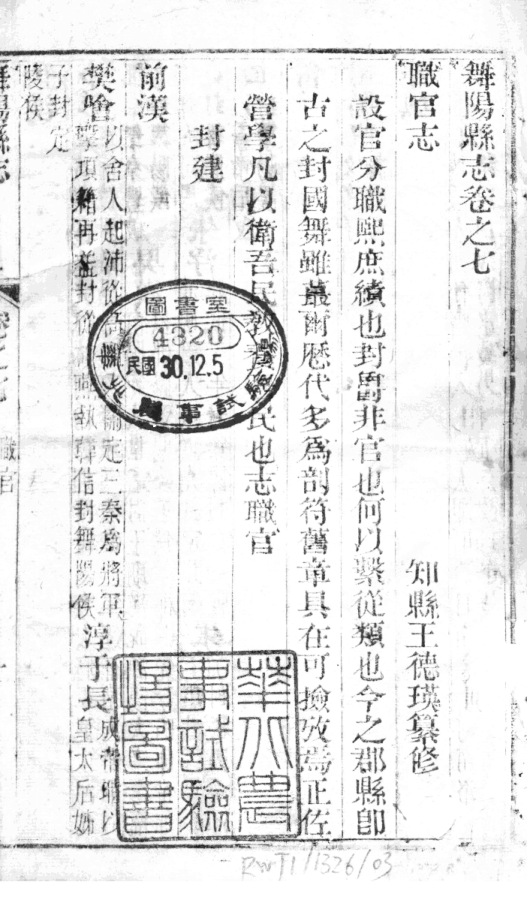 舞陽縣志卷之七
職官志
知縣王德瑛纂修
設官分職熙庶績也封爵非官也何以繫從類也今之郡縣卽
古之封國舞雖蕞爾歷代多為剖符舊章具在可撿攷焉正佐
營學凡以衛吾民教養民也志職官
封建
前漢
樊噲
以舍人起沛從
定三秦爲將軍
擊項籍再益封從
執韓信封舞陽侯
淳于長
成帝
以
皇太后姊
子封定
陵侯
舞陽縣志
卷之七
職官
圖書室
4320
民國30.12.5
事試驗
華北農
事試驗
場圖書
RWT1/1326/03